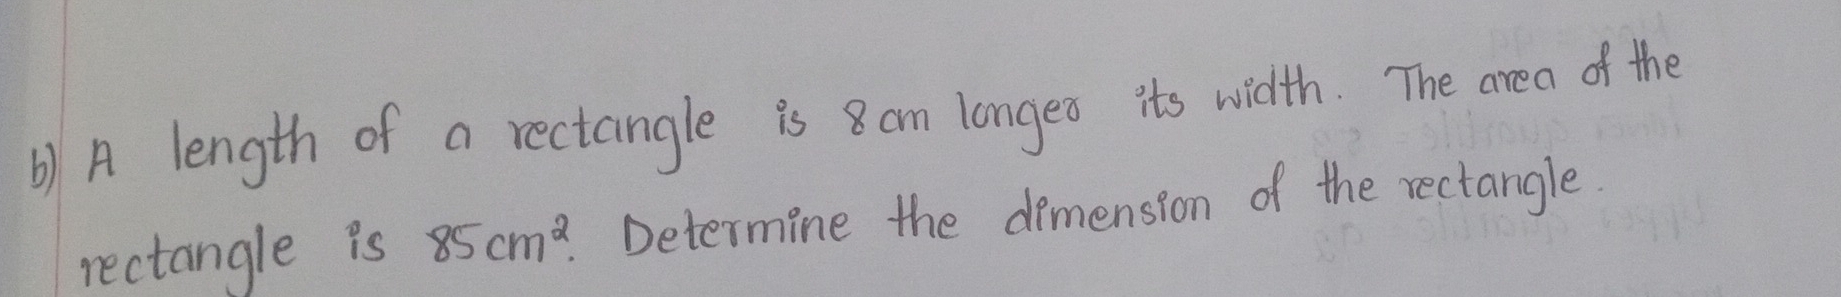 b) A length of a rectangle is 8 cm longer its width. The area of the
rectangle is 85 cm². Determine the dimension of the rectangle.